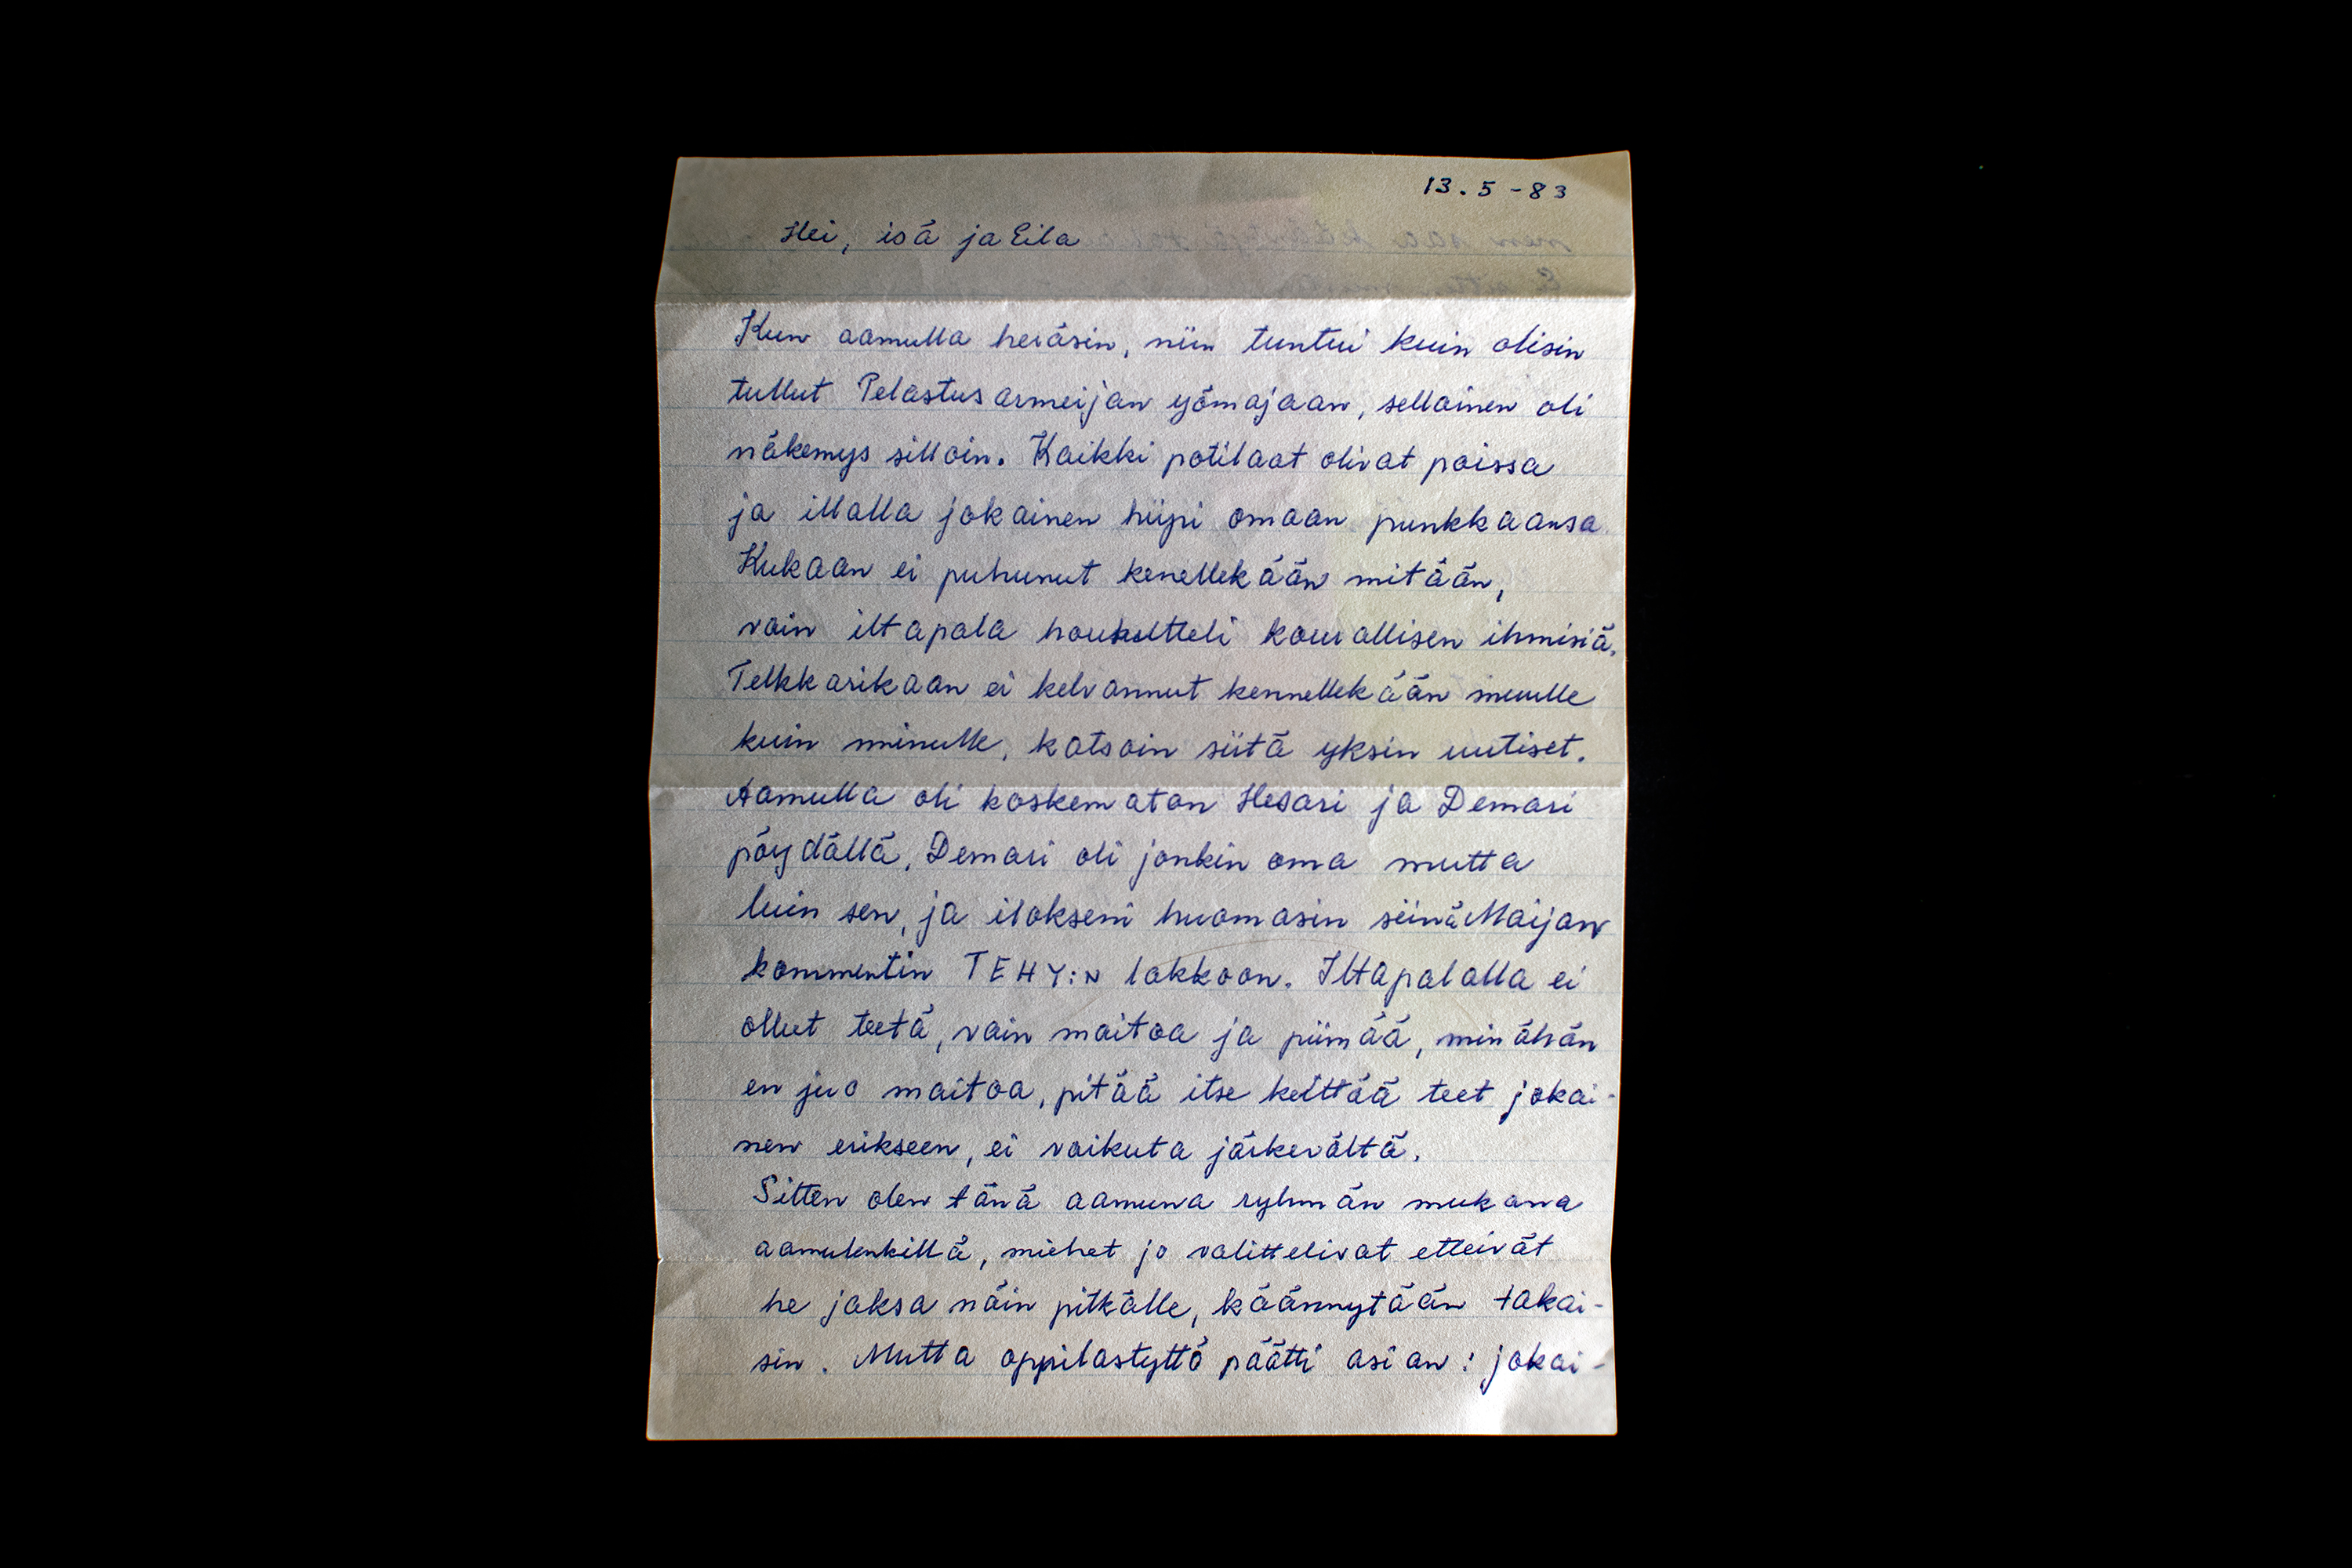 13.5 -83
Hei, isä ja Eila
Kun aamulla heräsin, niin tuntui kuin olisin
tullut Pelastusarmeijan yömajaan, sellainen oli
näkemys silloin. Kaikki potilaat olivat poissa
ja illalla jokainen hiipi omaan punkkaansa.
Kukaan ei puhunut kenellekään mitään,
vain iltapala houkutteli kourallisen ihmisiä.
Telkkarikaan ei kelvannut kennellekään muulle
kuin minulle, katsoin siitä yksin uutiset.
Aamulla oli koskematon Hesari ja Demari
pöydällä, Demari oli jonkin oma mutta
luin sen, ja ilokseni huomasin siinä Maijan
kommentin TEHY:N lakkoon. Iltapalalla ei
ollut teetä, vain maitoa ja piimää, minähän
en juo maitoa, pitää itse keittää teet jokai-
nen erikseen, ei vaikuta järkevältä.
Sitten olen tänä aamuna ryhmän mukana
aamulenkillä, miehet jo valittelivat etteivät
he jaksa näin pitkälle, käännytään takai-
sin. Mutta oppilastyttö päätti asian: jokai-